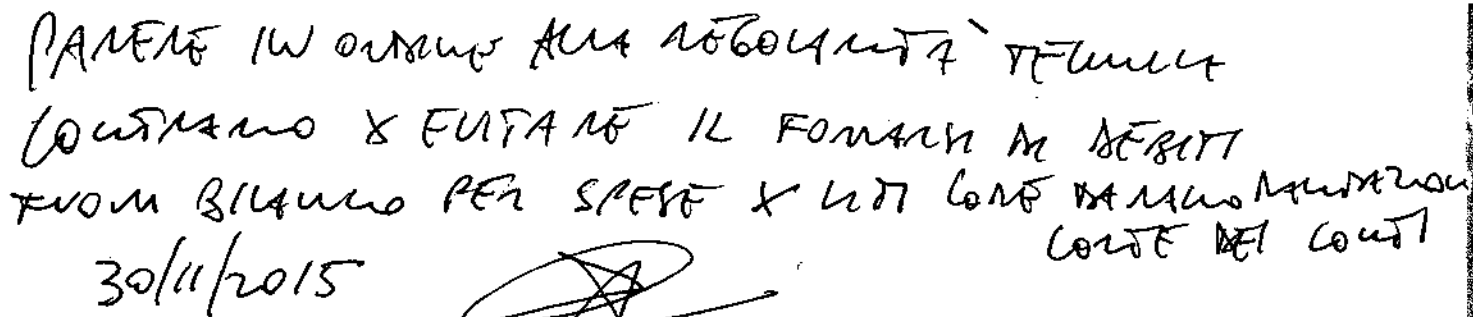 PARERE IN ORDINE ALLA REGOLARITÀ TECNICA
CONTRARIO X EVITARE IL FORMARSI DI DEBITI
FUORI BILANCIO PER SPESE X LITI COME DA RACCOMANDAZIONI
CORTE DEI CONTI
30/11/2015